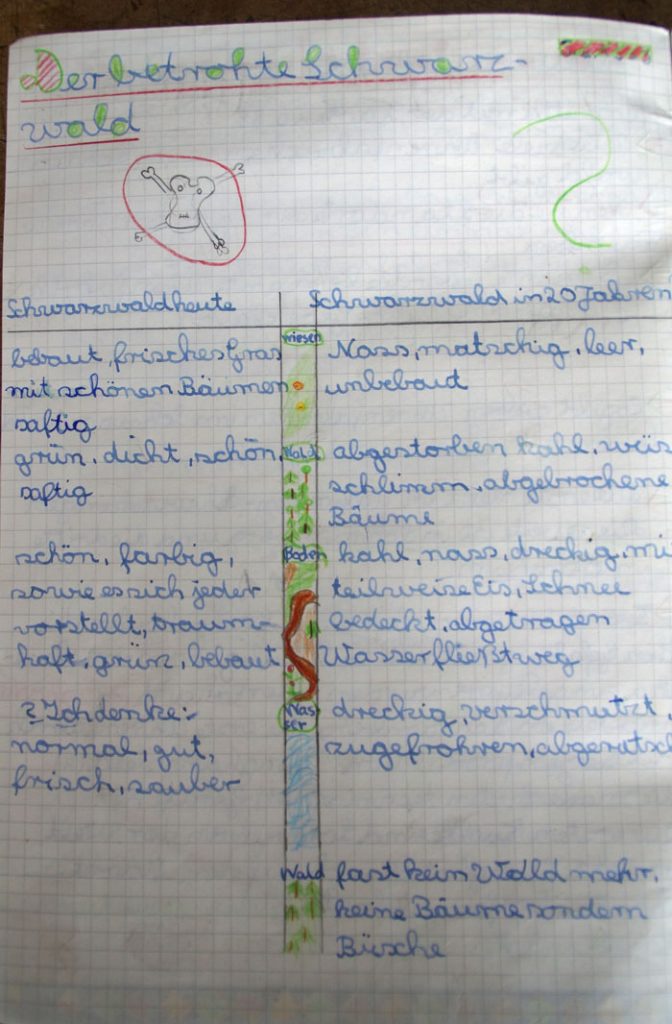 Der betrohte Schwarz-
wald
Schwarzwald heute
bebaut, frisches Gras
mit schönen Bäumen
saftig
grün, dicht, schön,
saftig
schön, farbig,
sowie es sich jeder
vorstellt, traum-
haft, grün, bebaut
? Ich denke:
normal, gut,
frisch, sauber
Wiesen
Wald
Boden
Was
ser
Wald
Schwarzwald in 20 Jahren
Nass, matschig, leer,
unbebaut
abgestorben kahl,
schlimm, abgebrochene
Bäume
kahl, nass, dreckig,
teilweise Eis, Schnee
bedeckt, abgetragen
Wasser fliest weg
dreckig, verschmutzt,
zugefrohren,
fast kein Wald mehr,
keine Bäume sondern
Büsche